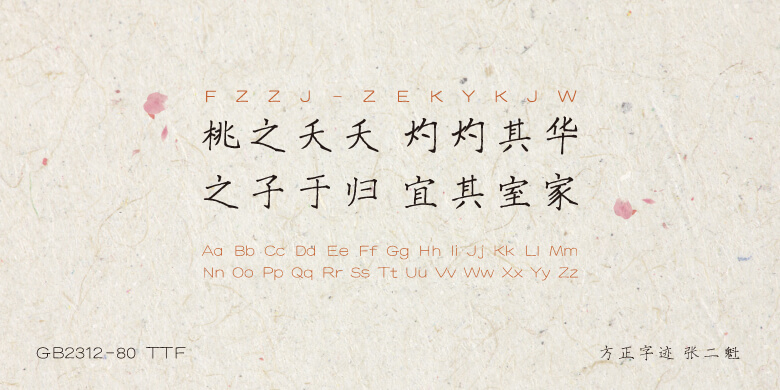 FZZJ-ZEKYKJW
桃之夭夭 灼灼其华
之子于归 宜其室家
Aa Bb Cc Dd Ee Ff Gg Hh Ii Jj Kk Ll Mm
Nn Oo Pp Qq Rr Ss Tt Uu Vv Ww Xx Yy Zz
GB2312-80 TTF
方正字迹 张二魁